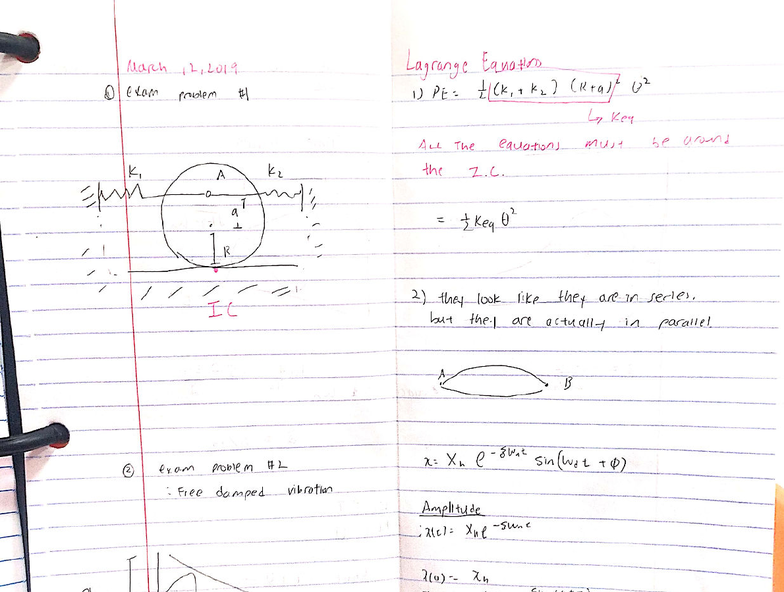 March ,2,2019
① Exam problem #1
K₁
A
K₂
a
R
IC
② Exam problem #2
: Free damped vibration
Lagrange Equation
1) PE = ½(K₁ + K₂) (R+a)² θ²
↳ Keq
All The equations must be around
the I.C.
= ½ Keq θ²
2) they look like they are in series.
but they are actually in parallel
A
B
x = Xₙ e^-ζωₙt sin(ωdt + φ)
Amplitude
; x(t) = Xₙe^-ζωₙt
x(0) = Xₙ